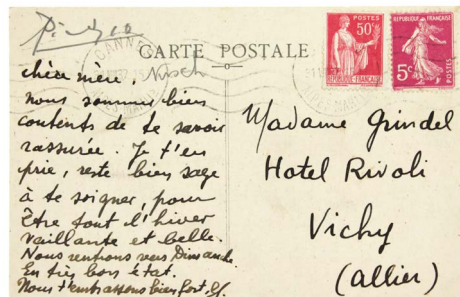 CANNES
CARTE POSTALE
POSTES
50c
RÉPUBLIQUE FRANÇAISE
RÉPUBLIQUE FRANÇAISE
5c
chère mère,
nous sommes bien
contents de te savoir
rassurée. Je t'en
prie, reste bien sage
à te soigner, pour
être tout l'hiver
vaillante et belle.
Nous rentrons vers Dimanche.
En très bon état.
Nous t'embrassons bien fort.
Madame Grindel
Hotel Rivoli
Vichy
(Allier)